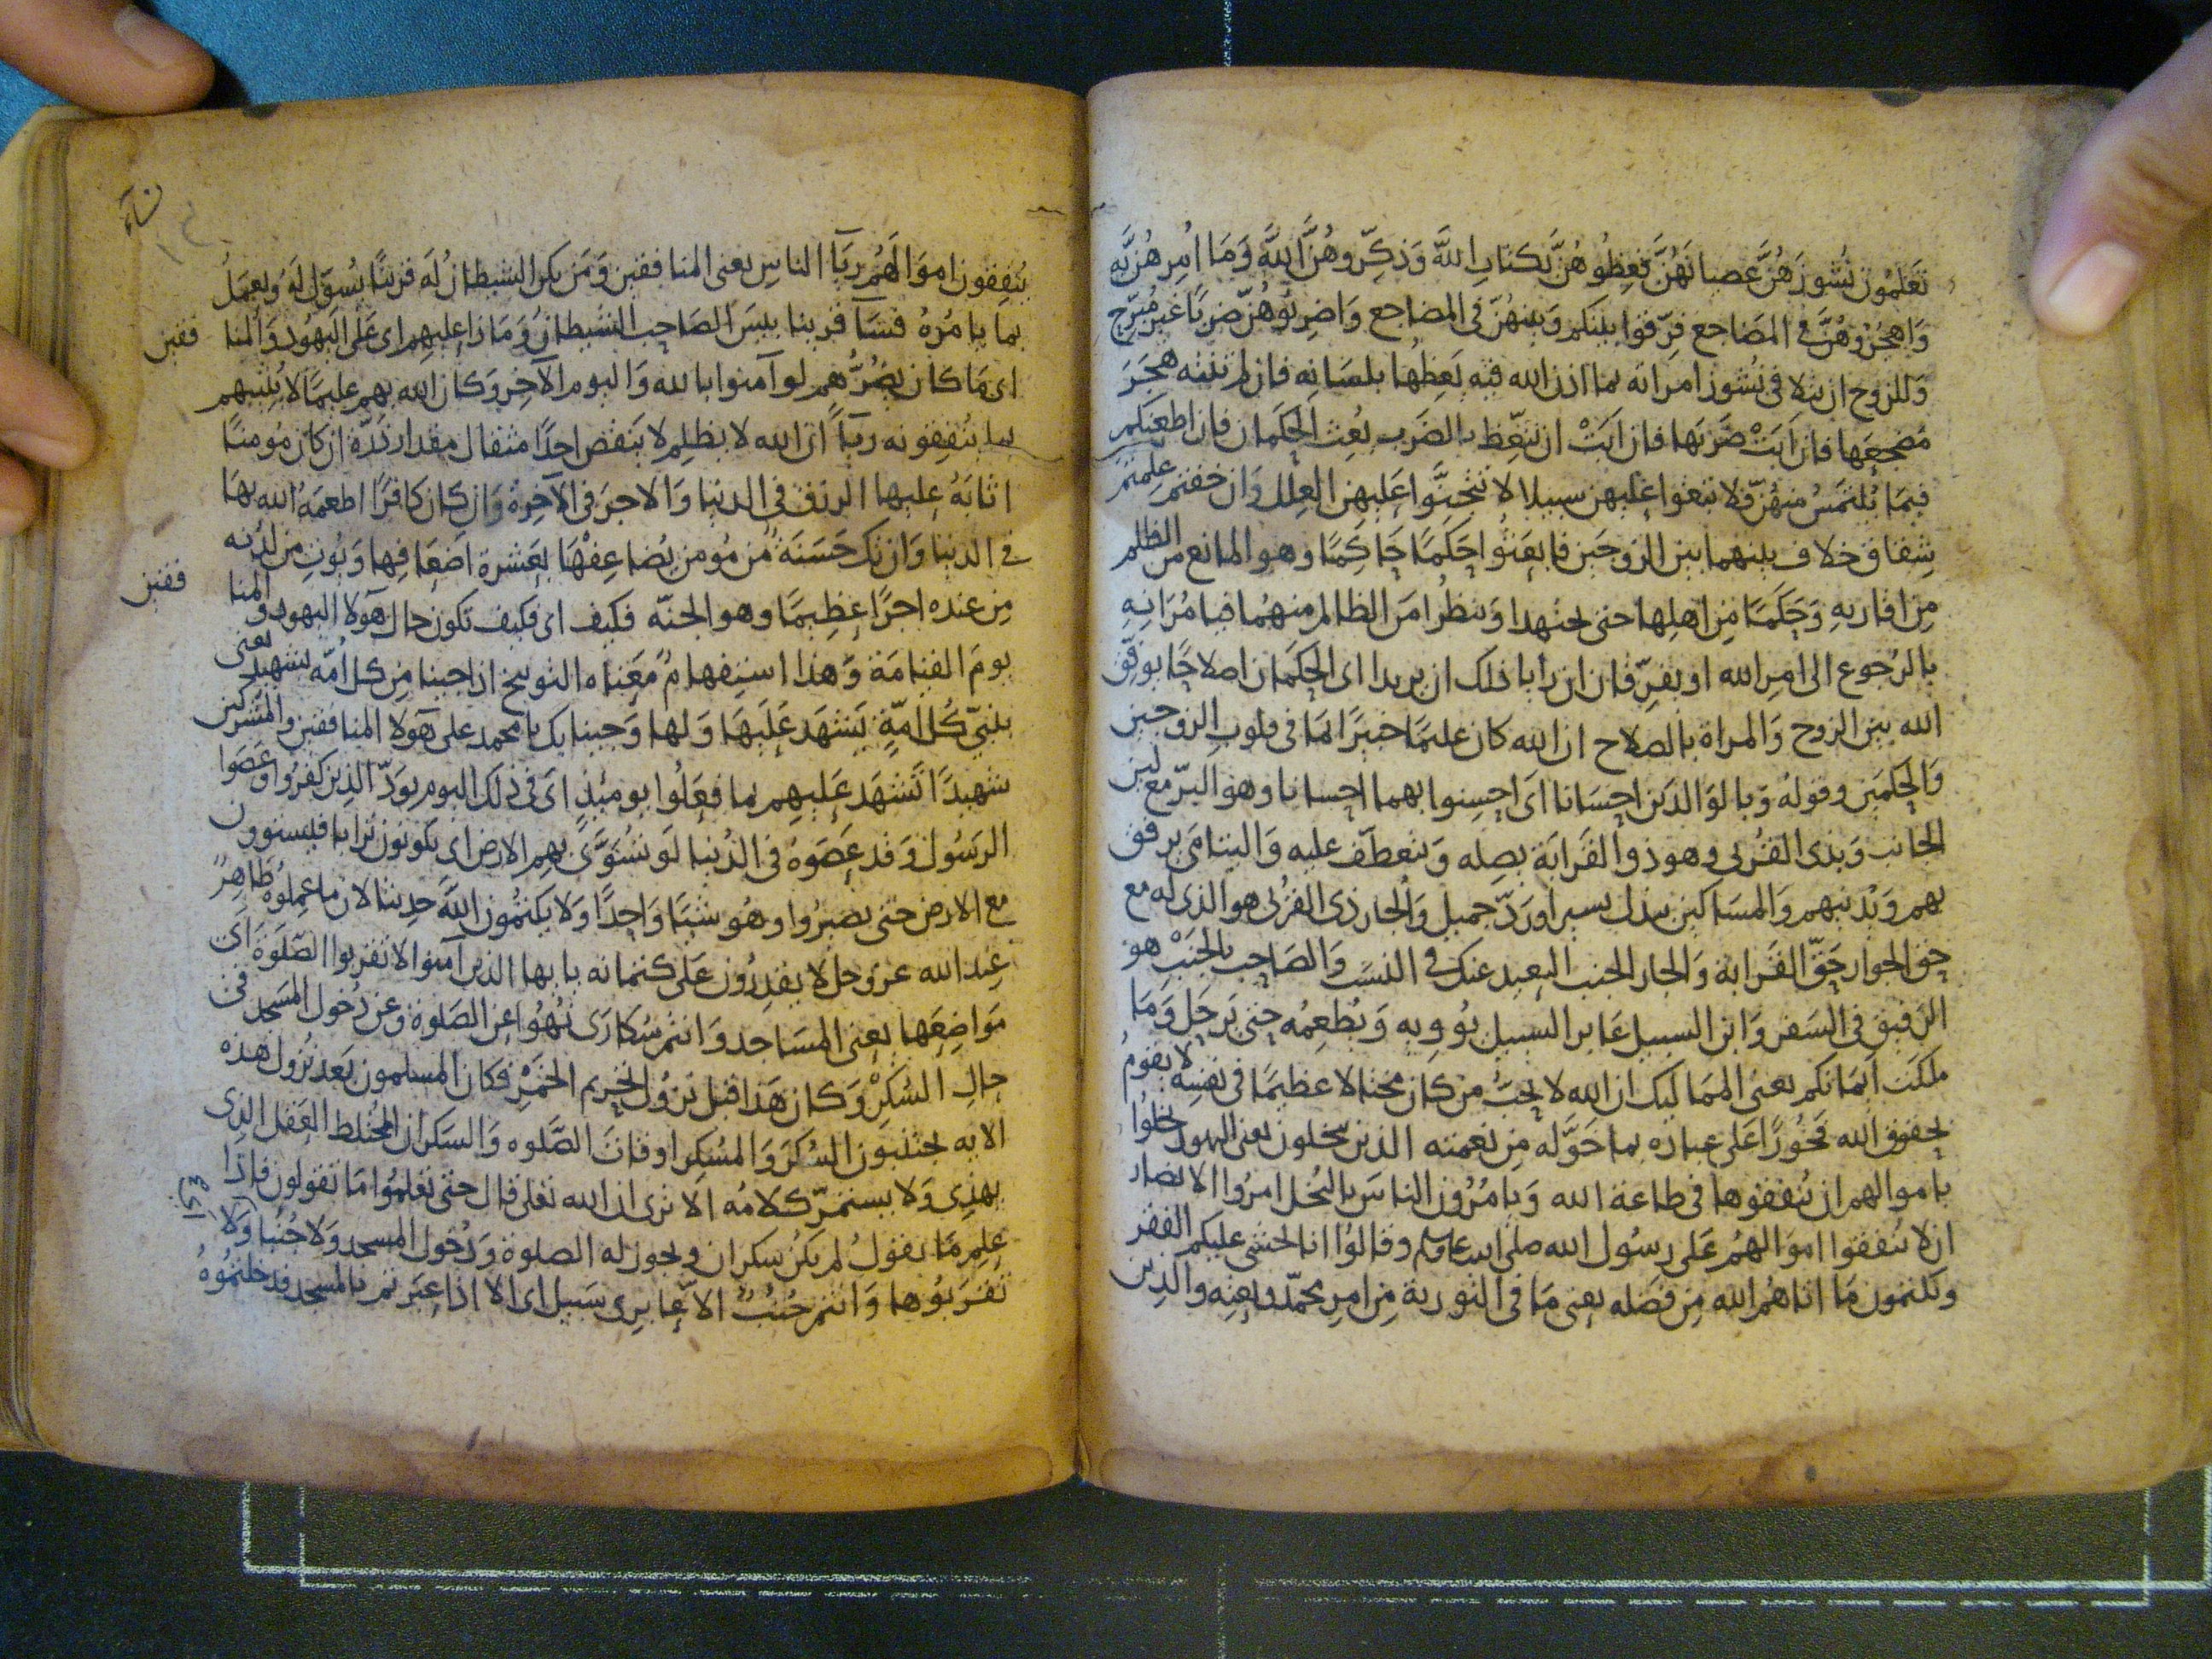 تعلمون نشوزهن عصيانهن فعظوهن بكتاب الله وذكروهن الله وما امرهن به
واهجروهن في المضاجع فرقوا بينكم وبينهن في المضاجع واضربوهن ضربا غير مبرح
وللزوج ان يتلا في نشوز امراته بما اذن الله فيه يعظها بلسانه فان لم تنته هجر
مضجعها فان ابت ضربها فان ابت ان تتعظ بالضرب بعث الحكمان فان اطعنكم
فيما يلتمس منهن فلا تبغوا عليهن سبيلا لا تتجنوا عليهن العلل وان خفتم علمتم
شقاق خلاف بينهما بين الزوجين فابعثوا حكما حاكما وهو المانع من الظلم
من اقاربه وحكما من اهلها حتى يجتهدا وينظرا من الظالم منهما فيامرانه
بالرجوع الى امر الله او يفرقان ان رايا ذلك ان يريدا اى الحكمان اصلاحا يوفق
الله بين الزوج والمراة بالصلاح ان الله كان عليما خبيرا بما في قلوب الزوجين
والحكمين وقوله وبالوالدين احسانا اى احسنوا بهما احسانا وهو البر مع لين
الجانب وبذى القربى وهو ذو القرابة يصله ويتعطف عليه واليتامى يرفق
بهم ويدنيهم والمساكين ببذل يسير او رد جميل والجار ذى القربى هو الذى له مع
حق الجوار حق القرابة والجار الجنب البعيد عنك في النسب والصاحب بالجنب هو
الرفيق في السفر وابن السبيل عابر السبيل يوويه ويطعمه حتى يرحل وما
ملكت ايمانكم يعنى المماليك ان الله لا يحب من كان مختالا عظيما في نفسه لا يقوم
بحقوق الله فخورا على عباده بما خوله من نعمته الذين يبخلون يعنى اليهود بخلوا
باموالهم ان ينفقوها في طاعة الله ويامرون الناس بالبخل امروا الانصار
ان لا ينفقوا اموالهم على رسول الله صلى الله عليه وسلم وقالوا انا نخشى عليكم الفقر
ويكتمون ما اتاهم الله من فضله يعنى ما في التورية من امر محمد ونعته والذين
نساء
ينفقون اموالهم ريآ الناس يعنى المنافقين ومن يكن الشيطان له قرينا يسول له ويعمل
بما يامره فسآ قرينا بيس الصاحب الشيطان وما ذا عليهم اى على اليهود والمنا فقين
اى ما كان يضرهم لو آمنوا بالله واليوم الآخر وكان الله بهم عليما لا يثيبهم
بما ينفقونه ريآ ان الله لا يظلم لا ينقص احدا مثقال مقدار ذرة ان كان مومنا
اثابه عليها الرزق في الدنيا والاجر في الآخرة وان كان كافرا اطعمه الله بها
في الدنيا وان تك حسنة من مومن يضاعفها بعشرة اضعافها ويوت من لدنه
من عنده اجرا عظيما وهو الجنة فكيف اى فكيف تكون حال هولآ اليهود والمنا فقين
يوم القيامة وهذا استفهام معناه التوبيخ اذا جينا من كل امة بشهيد يعنى
بنبى كل امة يشهد عليها ولها وجينا بك يا محمد على هولآ المنافقين والمشركين
شهيدا تشهد عليهم بما فعلوا يومئذ اى في ذلك اليوم يود الذين كفروا وعصوا
الرسول وقد عصوه في الدنيا لو تسوى بهم الارض اى يكونون ترابا فيستوون
مع الارض حتى يصيروا وهو شيا واحدا ولا يكتمون الله حديثا لان ما عملوه ظاهر
عند الله عز وجل لا يقدرون على كتمانه يا ايها الذين آمنوا لا تقربوا الصلوة اى
مواضعها يعنى المساجد وانتم سكارى نهوا عن الصلوة وعن دخول المسجد في
حال السكر وكان هذا قبل نزول تحريم الخمر فكان المسلمون بعد نزول هذه
الاية يجتنبون السكر والمسكر اوقات الصلوه والسكران المختلط العقل الذى
يهذى ولا يستمر كلامه الا ترى ان الله تعلى قال حتى تعلموا ما تقولون فاذا
علم ما يقول لم يكن سكران ويجوز له الصلوة ودخول المسجد ولا جنبا ولا
تقربوها وانتم جنب الا عابرى سبيل اى الا اذا عبرتم بالمسجد فدخلتموه